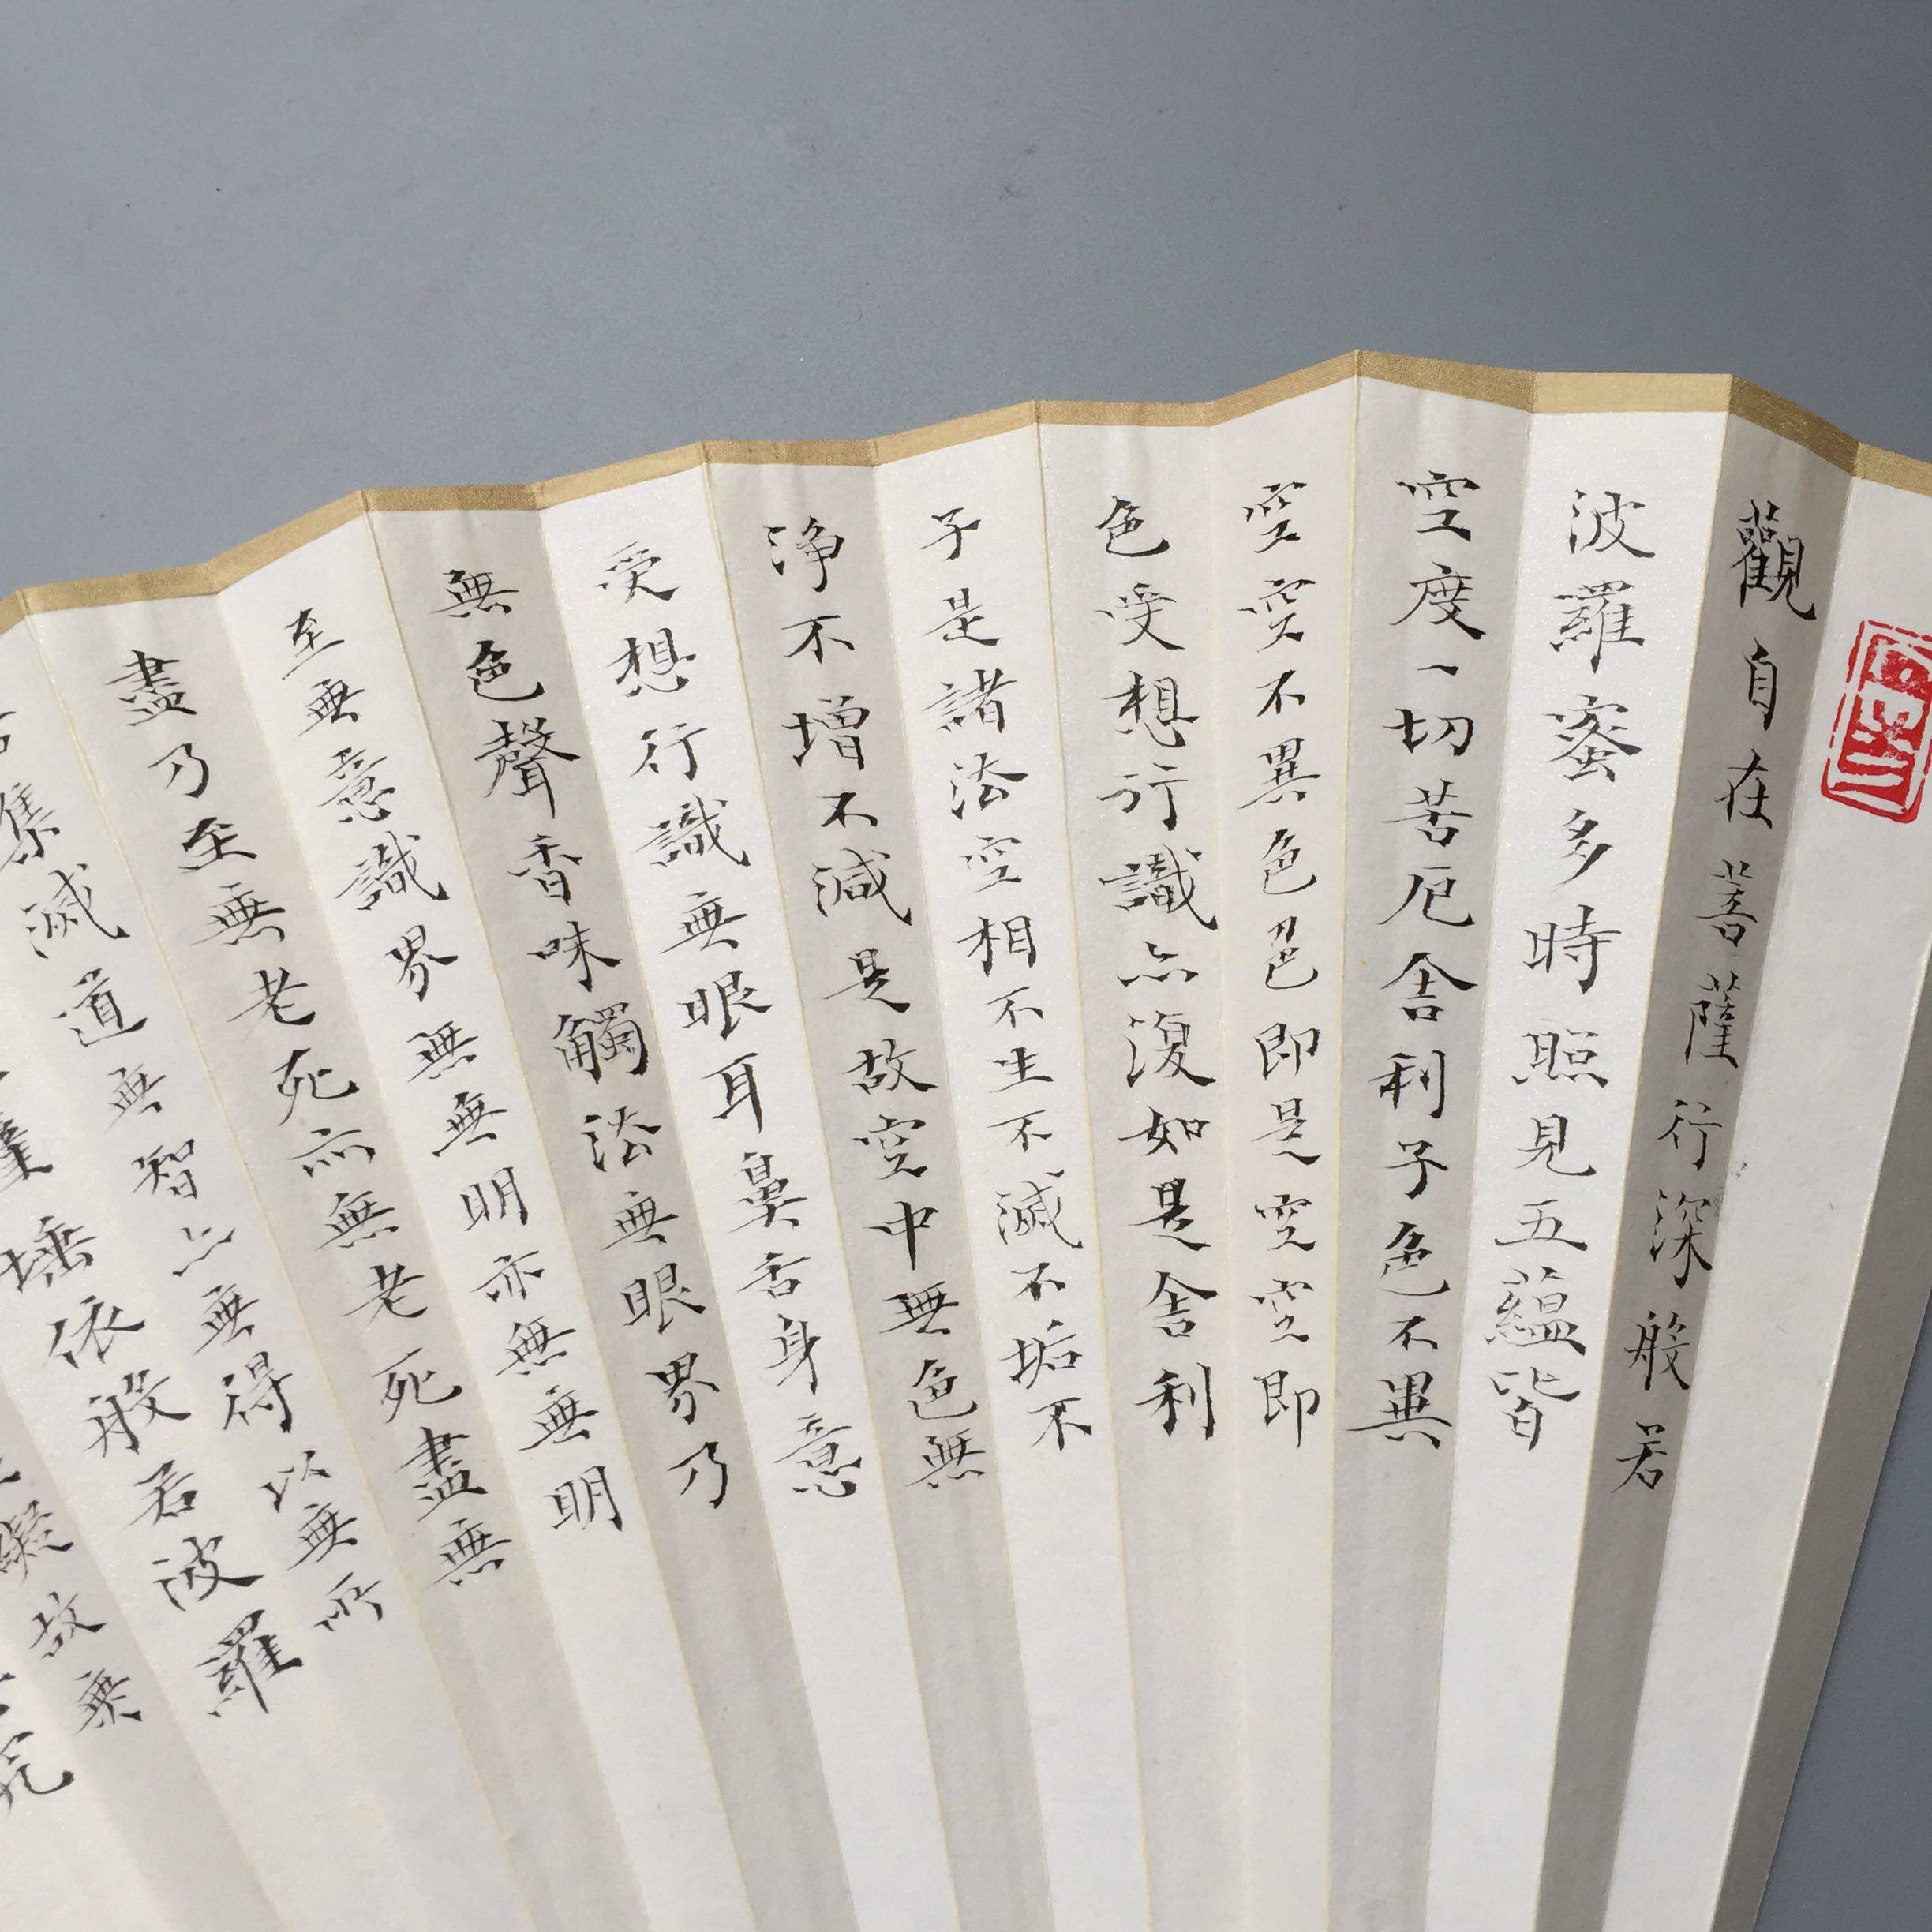 觀自在菩薩行深般若
波羅蜜多時照見五蘊皆
空度一切苦厄舍利子色不異
空空不異色色即是空空即
色受想行識亦復如是舍利
子是諸法空相不生不滅不垢不
淨不增不減是故空中無色無
受想行識無眼耳鼻舌身意
無色聲香味觸法無眼界乃
至無意識界無無明亦無無明
盡乃至無老死亦無老死盡無
集滅道無智亦無得以無所
埵依般若波羅
礙故無
究